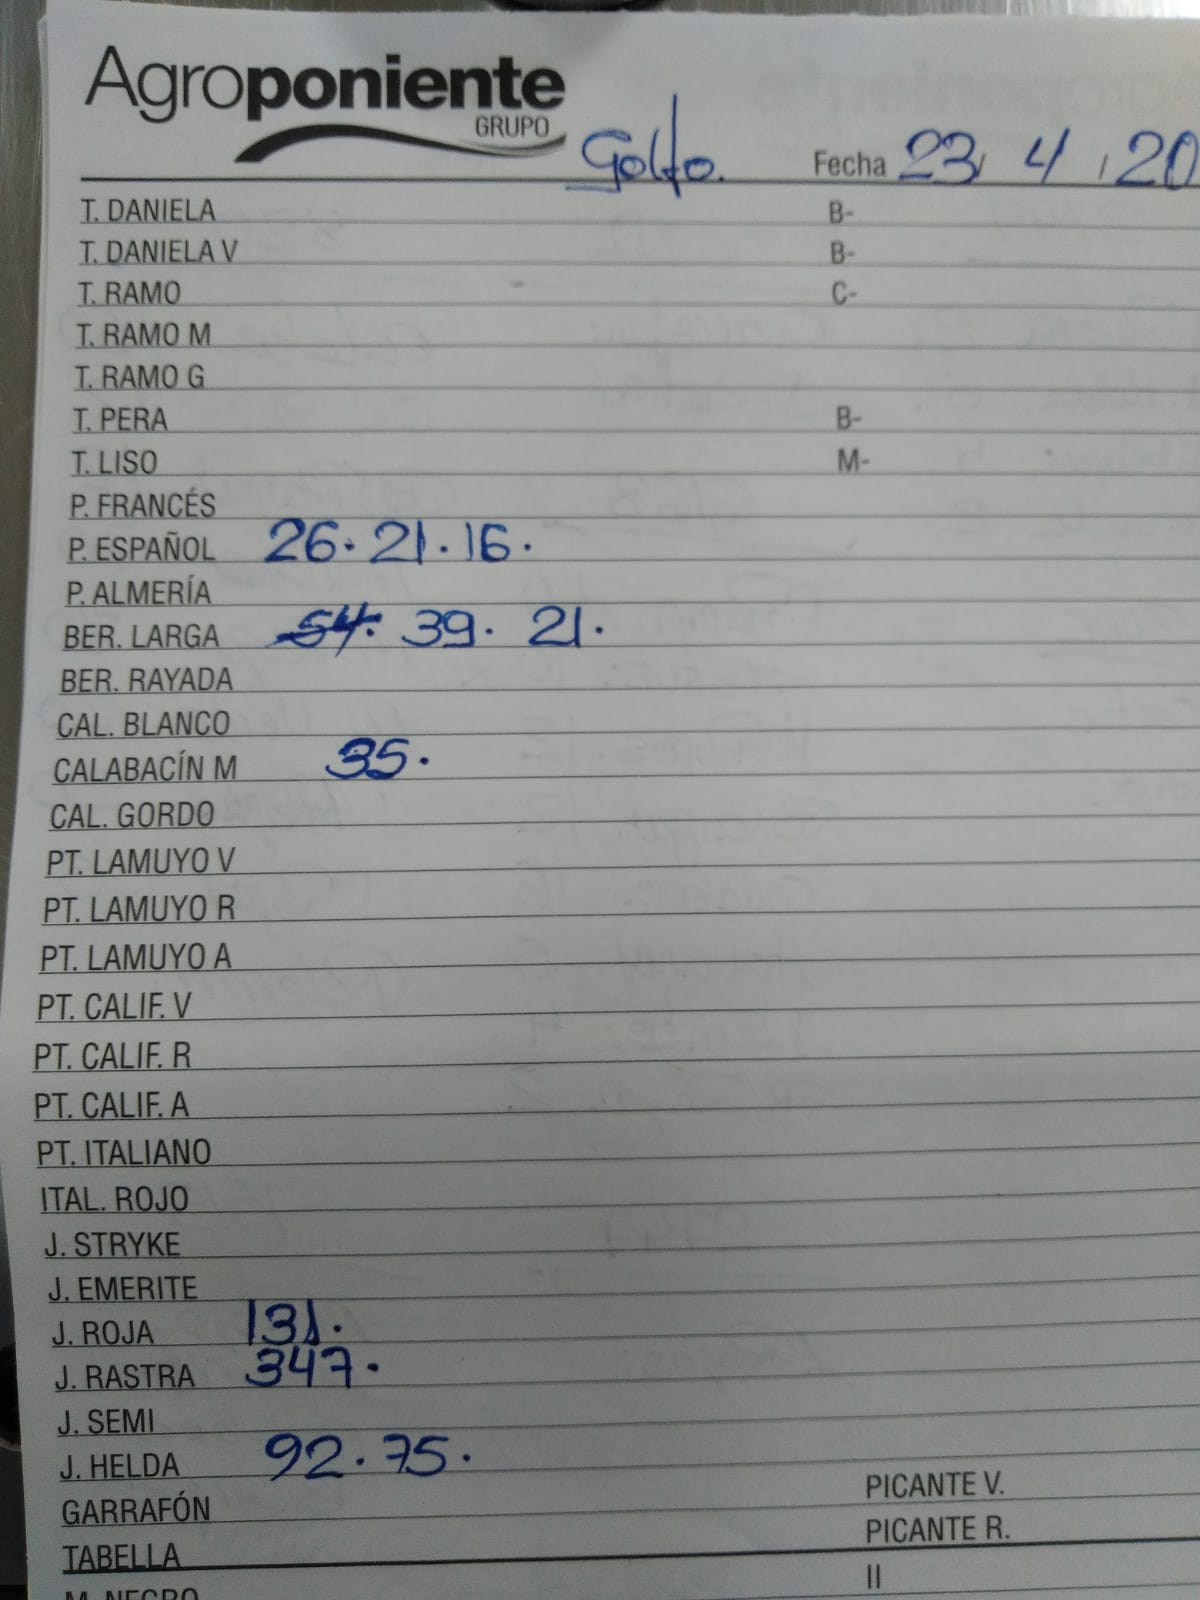 Agroponiente
GRUPO
Golfo. Fecha 23/ 4 / 20
T. DANIELA B-
T. DANIELA V B-
T. RAMO C-
T. RAMO M
T. RAMO G
T. PERA B-
T. LISO M-
P. FRANCÉS
P. ESPAÑOL 26. 21. 16.
P. ALMERÍA
BER. LARGA 54. 39. 21.
BER. RAYADA
CAL. BLANCO
CALABACÍN M 35.
CAL. GORDO
PT. LAMUYO V
PT. LAMUYO R
PT. LAMUYO A
PT. CALIF. V
PT. CALIF. R
PT. CALIF. A
PT. ITALIANO
ITAL. ROJO
J. STRYKE
J. EMERITE
J. ROJA 131.
J. RASTRA 347.
J. SEMI
J. HELDA 92. 75.
GARRAFÓN PICANTE V.
TABELLA PICANTE R.
M. NEGRO II